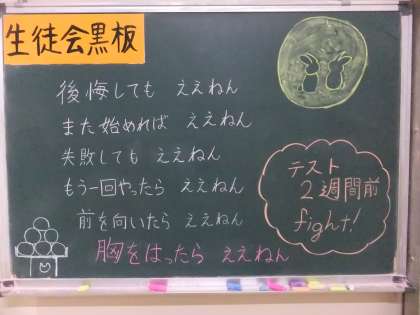 生徒会黒板
後悔しても ええねん
また始めれば ええねん
失敗しても ええねん
もう一回やったら ええねん
前を向いたら ええねん
胸をはったら ええねん
テスト
2週間前
fight!